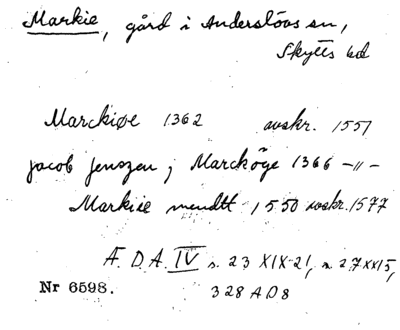 Markie, gård i Anderslövs sn,
Skytts hd
Marckiøe 1362 avskr. 1551
jacob jenszen i Marcköge 1366 –"–
Markiie mendtt 1550 avskr. 1577
Æ. D. A. IV s. 23 XIX 21, s. 27 XX 15,
328 AD8
Nr 6598.